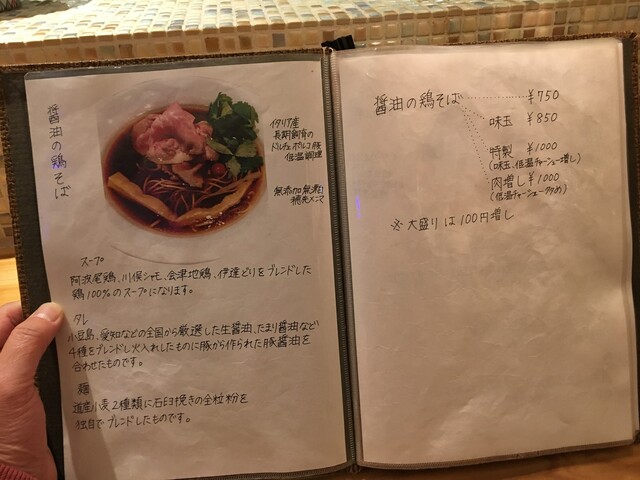 醤油の鶏そば
イタリア産
長期飼育の
ドルチェポルコ豚
低温調理
無添加無漂白
穂先メンマ
スープ
阿波尾鶏、川俣シャモ、会津地鶏、伊達どりをブレンドした
鶏100%のスープになります。
タレ
小豆島、愛知などの全国から厳選した生醤油、たまり醤油など
4種をブレンドし火入れしたものに豚から作られた豚醤油を
合わせたものです。
麺
道産小麦2種類に石臼挽きの全粒粉を
独自でブレンドしたものです。
醤油の鶏そば ¥750
味玉 ¥850
特製 ¥1000
(味玉、低温チャーシュー増し)
肉増し ¥1000
(低温チャーシュー多め)
※ 大盛りは100円増し